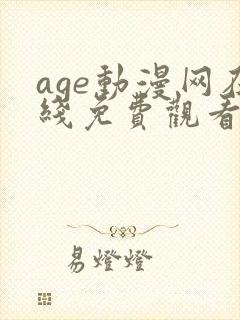 age動漫网在
綫免費觀看
易燈燈